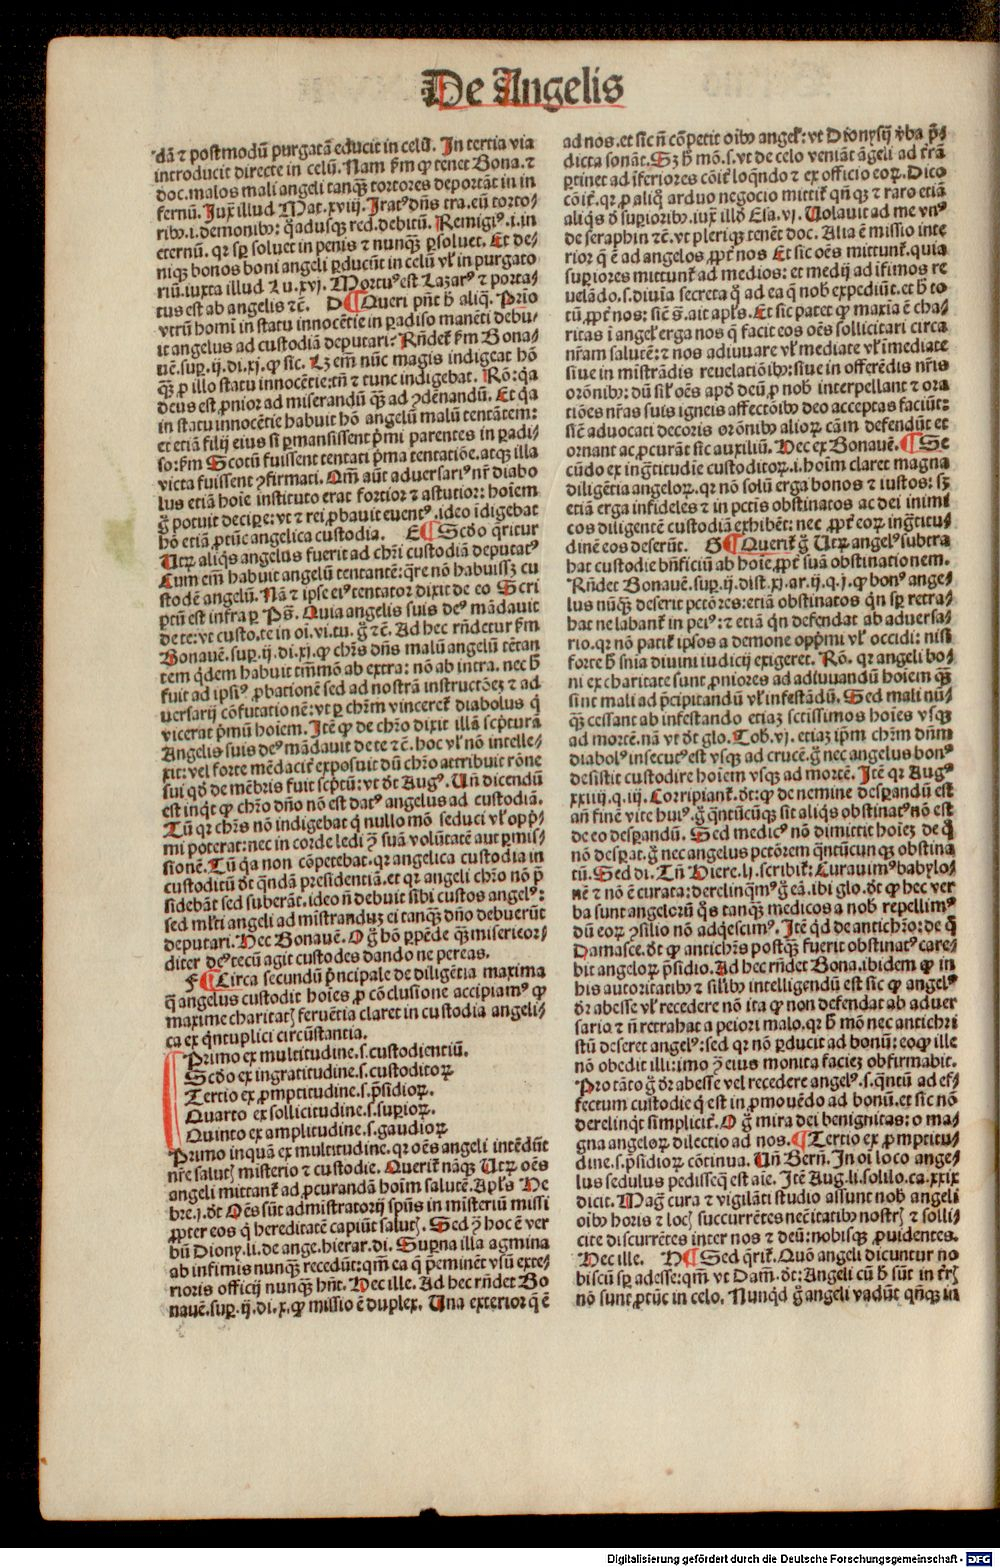 De Angelis
dã ⁊ postmodũ purgatã educit in celũ. In tertia via
introducit directe in celũ. Nam s̃m ꝙ tenet Bona. ⁊
doc. malos mali angeli tanqꝫ tortores deportãt in in
fernũ. Iux̃ illud Mat. xviij. Iratꝰ dñs tra. eũ torto⸗
ribꝰ .i. demonibꝰ: q̃adusqꝫ red. debitũ. Remigiꝰ .i. in
eternũ. qꝛ sꝑ soluet in penis ⁊ nunqꝫ ꝑsoluet. Et de⸗
niqꝫ bonos boni angeli ꝑducũt in celũ vl̕ in purgato
riũ. iuxta illud Lu. xvj. Mortuꝰ est Lazarꝰ ⁊ porta⸗
tus est ab angelis ⁊c̃. D ¶ Queri pñt h̃ aliq̃. Primo
vtrũ homĩ in statu innocẽtie in ꝑadiso manẽti debu⸗
it angelus ad custodiã deputari? Rñdet̃ s̃m Bona⸗
uẽ. suꝑ. ij. di. xj. ꝙ sic. Lꝫ em̃ nũc magis indigeat hõ
qꝫ̃ ꝓ illo statu innocẽtie: tñ ⁊ tunc indigebat. Rõ: q̃a
deus est ꝓnior ad miserandũ qꝫ̃ ad ꝯdẽnandũ. Et q̃a
in statu innocẽtie habuit hõ angelũ malũ tentãtem:
et etiã filij eius si ꝑmansissent p̃mi parentes in ꝑadi⸗
so: s̃m Scotũ fuissent tentati p̃ma tentatiõe. atqꝫ illa
victa fuissent ꝯfirmati. Qm̃ aũt aduersariꝰ nr̃ diabo
lus etiã hoĩe instituto erat fortior ⁊ astutior: hoĩem
g̃ potuit deciꝑe: vt ⁊ rei ꝓbauit euentꝰ. ideo ĩdigebat
hõ etiã ꝓ tũc angelica custodia. E ¶ Scdo q̃ritur
Utꝝ aliq̃s angelus fuerit ad chr̃i custodiã deputatꝰ
Cum em̃ habuit angelũ tentantẽ: q̃re nõ habuissꝫ cu
stodẽ angelũ. Nã ⁊ ipse eiꝰ tentator dixit de eo Scri
ptũ est infra ꝑ Ps̃. Quia angelis suis deꝰ mãdauit
de te: vt custo. te in oi. vi. tu. g̃ ⁊c̃. Ad hec rñdetur s̃m
Bonauẽ. suꝑ. ij. di. xj. ꝙ chr̃s dñs malũ angelũ tẽtan
tem q̃dem habuit tm̃mõ ab extra: nõ ab intra. nec h̃
fuit ad ipsiꝰ ꝓbationẽ sed ad nostrã instructõeꝫ ⁊ ad
uersarij cõfutationẽ: vt ꝑ chr̃m vinceret̃ diabolus q̃
vicerat p̃mũ hoĩem. Itẽ ꝙ de chr̃o dixit illã scp̃turã
Angelis suis deꝰ mãdauit de te ⁊c̃. hoc vl̕ nõ intelle⸗
xit: vel forte mẽdacit̃ exposuit dũ chr̃o attribuit rõne
sui qd̕ de mẽbris fuit scp̃tũ: vt dt̃ Augꝰ. Uñ dicendũ
est inq̃t ꝙ chr̃o dño nõ est datꝰ angelus ad custodiã.
Tũ qꝛ chr̃s nõ indigebat q̃ nullo mõ seduci vl̕ opp̃⸗
mi poterat: nec in corde ledi ꝯ̃ suã volũtatẽ aut ꝑmis⸗
sionẽ. Tũ q̃a non cõpetebat. qꝛ angelica custodia in
custoditũ dt̃ qñdã presidentiã. et qꝛ angeli chr̃o nõ p̃
sidebãt sed suberãt. ideo ñ debuit sibi custos angelꝰ:
sed ml̕ti angeli ad mĩstranduꝫ ei tanqꝫ dño debuerũt
deputari. Hec Bonauẽ. O g̃ hõ ꝑpẽde qꝫ̃ misericor⸗
diter deꝰ tecũ agit custodes dando ne pereas.
F ¶ Circa secundũ p̃ncipale de diligẽtia maxima
q̃ angelus custodit hoĩes ꝓ cõclusione accipiamꝰ ꝙ
maxime charitatꝭ feruẽtia claret in custodia angeli⸗
ca ex q̃ntuplici circũstantia.
Primo ex multitudine .s. custodientiũ.
Scdo ex ingratitudine .s. custoditoꝝ
Tertio ex ꝓmptitudine .s. p̃sidioꝝ.
Quarto ex sollicitudine .s. suꝑioꝝ.
Quinto ex amplitudine .s. gaudioꝝ
Primo inquã ex multitudine. qꝛ oẽs angeli intẽdũt
nr̃e salutꝭ misterio ⁊ custodie. Querit̃ nãqꝫ Utꝝ oẽs
angeli mittant̃ ad ꝓcurandã hoĩm salutẽ. Apl̕s He
bre. j. dt̃ Oẽs sũt admĩstratorij spũs in misteriũ missi
ꝓpter eos q̃ hereditatẽ capiũt salutꝭ. Sed ꝯ̃ hoc ẽ ver
bũ Diony. li. de ange. hierar. di. Suꝑna illa agmina
ab infimis nunqꝫ recedũt: qm̃ ea q̃ p̃eminẽt vsũ exte⸗
rioris officij nunqꝫ hñt. Hec ille. Ad hec rñdet Bo
nauẽ. suꝑ. ij. di. x. ꝙ missio ẽ duplex. Una exterior q̃ ẽ
ad nos. et sic ñ cõpetit oĩbꝰ angel̕: vt Dionysij v̕ba p̃⸗
dicta sonãt. Sꝫ h̃ mõ .s. vt de celo veniãt ãgeli ad t̃rã
ꝑtinet ad ĩferiores cõit̃ loq̃ndo ⁊ ex officio eoꝝ. Dico
cõit̃. qꝛ ꝓ aliq̃ arduo negocio mittit̃ qñqꝫ ⁊ raro etiã
aliq̃s d̕ suꝑioribꝰ. iux̃ illd̕ Esa. vj. Uolauit ad me vnꝰ
de seraphin ⁊c̃. vt pleriqꝫ tenẽt doc. Alia ẽ missio inte
rior q̃ ẽ ad angelos ꝓpt̃ nos Et sic oẽs mittunt̃. quia
suꝑiores mittunt̃ ad medios: et medij ad ĩfimos re
uelãdo .s. diuĩa secreta q̃ ad ea q̃ nob̕ expediũt. et h̃ to
tũ ꝓpt̃ nos: sicẽ s̃. ait apl̕s. Et sic patet ꝙ maxĩa ẽ cha⸗
ritas ĩ angel̕ erga nos q̃ facit eos oẽs sollicitari circa
nr̃am salutẽ: ⁊ nos adiuuare vl̕ mediate vl̕ ĩmediate
siue in mĩstrãdis reuelatiõibꝰ: siue in offerẽdis nr̃is
orõnibꝰ: dũ sil̕ oẽs apd̕ deũ ꝓ nob̕ interpellant ⁊ ora
tiões nr̃as suis igneis affectõibꝰ deo acceptas faciũt:
sicẽ aduocati decoris orõnibꝰ alioꝝ cãm defendũt et
ornant ac ꝓcurãt sic auxiliũ. Hec ex Bonauẽ. ¶ Se
cũdo ex ingr̃titudĩe custoditoꝝ .i. hoĩm claret magna
diligẽtia angeloꝝ. qꝛ nõ solũ erga bonos ⁊ iustos: sꝫ
etiã erga infideles ⁊ in pctĩs obstinatos ac dei inimi
cos diligentẽ custodiã exhibẽt: nec ꝓpt̃ eoꝝ ingr̃titu⸗
dinẽ eos deserũt. G ¶ Querit̃ g̃ Utꝝ angelꝰ subtra
hat custodie bñficiũ ab hoĩe ꝓpt̃ suã obstinationem.
Rñdet Bonauẽ. suꝑ. ij. dist. xj. ar. ij. q. j. ꝙ bonꝰ ange⸗
lus nũqꝫ̃ deserit pctõres: etiã obstinatos qñ sꝑ retra⸗
hat ne labant̃ in peiꝰ: ⁊ etiã qñ defendat ab aduersa⸗
rio. qꝛ nõ patit̃ ipsos a demone opp̃mi vl̕ occidi: nisi
forte h̃ sñia diuini iudicij exigeret. Rõ. qꝛ angeli bo⸗
ni ex charitate sunt ꝓniores ad adiuuandũ hoĩem qꝫ̃
sint mali ad p̃cipitandũ vl̕ infestãdũ. Sed mali nũ⸗
qꝫ̃ cessant ab infestando etiaꝫ sctissimos hoĩes vsqꝫ
ad mortẽ. nã vt dt̃ glo. Tob. vj. etiaꝫ ip̃m chr̃m dñm
diabolꝰ insecutꝰ est vsqꝫ ad crucẽ. g̃ nec angelus bonꝰ
desistit custodire hoĩem vsqꝫ ad mortẽ. Itẽ qꝛ Augꝰ
xxiij. q. iij. Corripiant̃. dt̃: ꝙ de nemine desꝑandũ est
añ finẽ vite huiꝰ. g̃ qñtũcũqꝫ sit aliq̃s obstinatꝰ nõ est
de eo desꝑandũ. Sed medicꝰ nõ dimittit hoĩeꝫ de q̃
nõ desꝑat. g̃ nec angelus pctõrem qñtũcunqꝫ obstina
tũ. Sed di. Tñ Hiere. lj. scribit̃: Curauimꝰ babylo⸗
nẽ ⁊ nõ ẽ curata: derelinqm̃ꝰ g̃ eã. ibi glo. dt̃ ꝙ hec ver
ba sunt angelorũ q̃s tanqꝫ medicos a nob̕ repellimꝰ
dũ eoꝝ ꝯsilio nõ adq̃escimꝰ. Itẽ qd̕ de antichr̃o: de q̃
Damasce. dt̃ ꝙ antichr̃s postqꝫ̃ fuerit obstinatꝰ care⸗
bit angeloꝝ p̃sidio. Ad hec rñdet Bona. ibidem ꝙ in
his autoritatibꝰ ⁊ sil̕ibꝰ intelligendũ est sic ꝙ angelꝰ
dr̃ abesse vl̕ recedere nõ ita ꝙ non defendat ab aduer
sario ⁊ ñ retrahat a peiori malo. qꝛ h̃ mõ nec antichri
stũ deseret angelꝰ: sed qꝛ nõ ꝑducit ad bonũ: eoꝙ ille
nõ obedit illi: imo ꝯ̃ eius monita facieꝫ obfirmabit.
Pro tãto g̃ dr̃ abesse vel recedere angelꝰ .s. qñtũ ad ef⸗
fectum custodie q̃ est in ꝓmouẽdo ad bonũ. et sic nõ
derelinq̃t simplicit̃. O g̃ mira dei benignitas: o ma⸗
gna angeloꝝ dilectio ad nos. ¶ Tertio ex ꝓmptitu⸗
dine .s. p̃sidioꝝ cõtinua. Uñ Bern̄. In oi loco ange⸗
lus sedulus pedisseq̃ est aĩe. Itẽ Aug. li. solilo. ca. xxix
dicit. Mag̃ cura ⁊ vigilãti studio assunt nob̕ angeli
oĩbꝰ horis ⁊ locꝭ succurrẽtes necẽitatibꝰ nostrꝭ ⁊ solli⸗
cite discurrẽtes inter nos ⁊ deũ: nobisqꝫ ꝓuidentes.
Hec ille. H ¶ Sed q̃rit̃. Quõ angeli dicuntur no
biscũ sꝑ adesse: qm̃ vt Dam̃. dt̃: Angeli cũ h̃ sũt in t̃rꝭ
nõ sunt ꝓ tũc in celo. Nunq̃d g̃ angeli vadũt qñqꝫ in
Digitalisierung gefördert durch die Deutsche Forschungsgemeinschaft - DFG